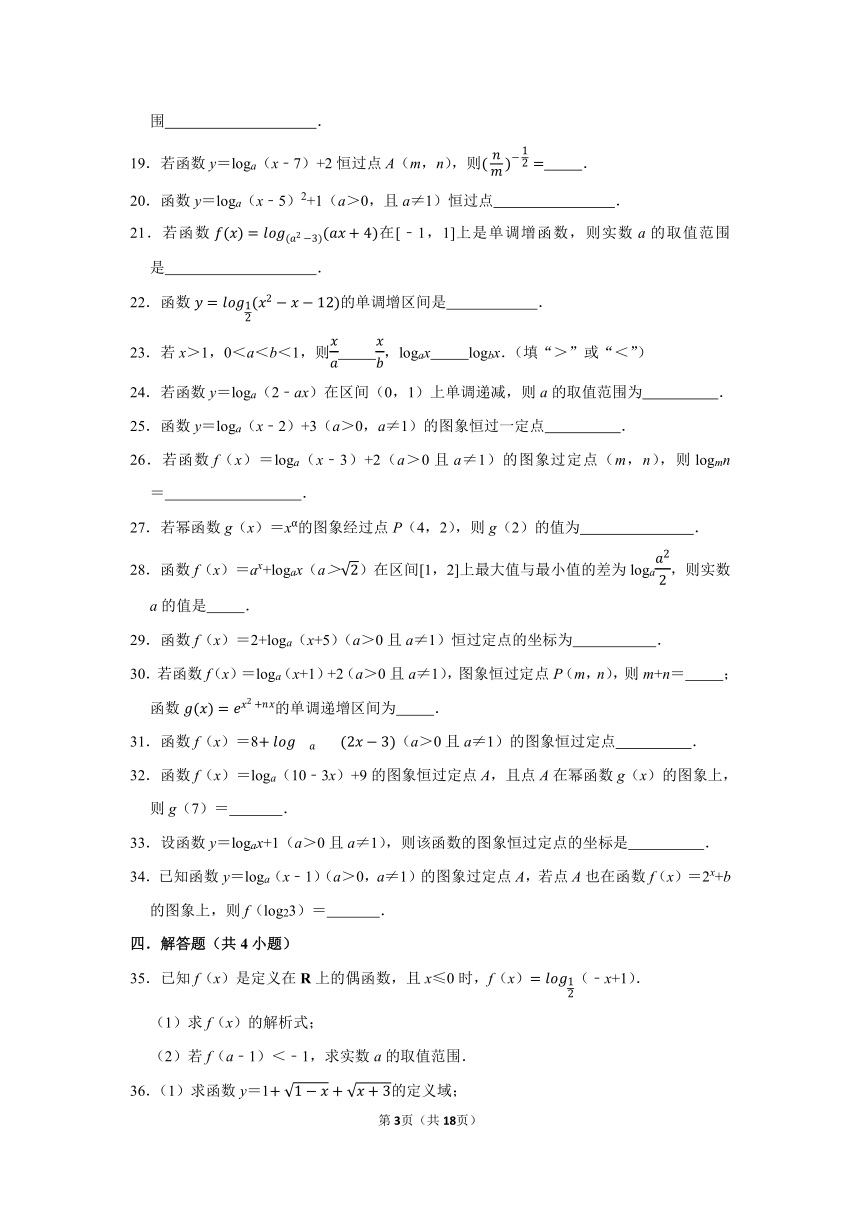 围                    .
19．若函数 y＝logₐ（x﹣7）+2 恒过点 A（m，n），则(n/m)^(-1/2) =      .
20．函数 y＝logₐ（x﹣5）²+1（a＞0，且 a≠1）恒过点                .
21．若函数 f(x) = log_(a²−3)(ax + 4)在[﹣1，1]上是单调增函数，则实数 a 的取值范围
是                    .
22．函数 y = log_(1/2)(x² − x − 12)的单调增区间是            .
23．若 x＞1，0＜a＜b＜1，则x/a      x/b，logₐx      log_b x.（填“＞”或“＜”）
24．若函数 y＝logₐ（2﹣ax）在区间（0，1）上单调递减，则 a 的取值范围为          .
25．函数 y＝logₐ（x﹣2）+3（a＞0，a≠1）的图象恒过一定点          .
26．若函数 f（x）＝logₐ（x﹣3）+2（a＞0 且 a≠1）的图象过定点（m，n），则 log_m n
＝                  .
27．若幂函数 g（x）＝x^α的图象经过点 P（4，2），则 g（2）的值为               .
28．函数 f（x）＝aˣ+logₐx（a＞√2）在区间[1，2]上最大值与最小值的差为 logₐ a²/2，则实数
a 的值是      .
29．函数 f（x）＝2+logₐ（x+5）（a＞0 且 a≠1）恒过定点的坐标为           .
30．若函数 f（x）＝logₐ（x+1）+2（a＞0 且 a≠1），图象恒过定点 P（m，n），则 m+n＝      ；
函数 g(x) = e^(x²+nx)的单调递增区间为      .
31．函数 f（x）＝8+ log a (2x − 3)（a＞0 且 a≠1）的图象恒过定点          .
32．函数 f（x）＝logₐ（10﹣3x）+9 的图象恒过定点 A，且点 A 在幂函数 g（x）的图象上，
则 g（7）＝       .
33．设函数 y＝logₐx+1（a＞0 且 a≠1），则该函数的图象恒过定点的坐标是          .
34．已知函数 y＝logₐ（x﹣1）（a＞0，a≠1）的图象过定点 A，若点 A 也在函数 f（x）＝2ˣ+b
的图象上，则 f（log₂3）＝       .
四．解答题（共 4 小题）
35．已知 f（x）是定义在 R 上的偶函数，且 x≤0 时，f（x）= log_(1/2)（﹣x+1）.
（1）求 f（x）的解析式；
（2）若 f（a﹣1）＜﹣1，求实数 a 的取值范围.
36.（1）求函数 y＝1+ √(1 − x) + √(x + 3)的定义域；
第 3页（共 18页）